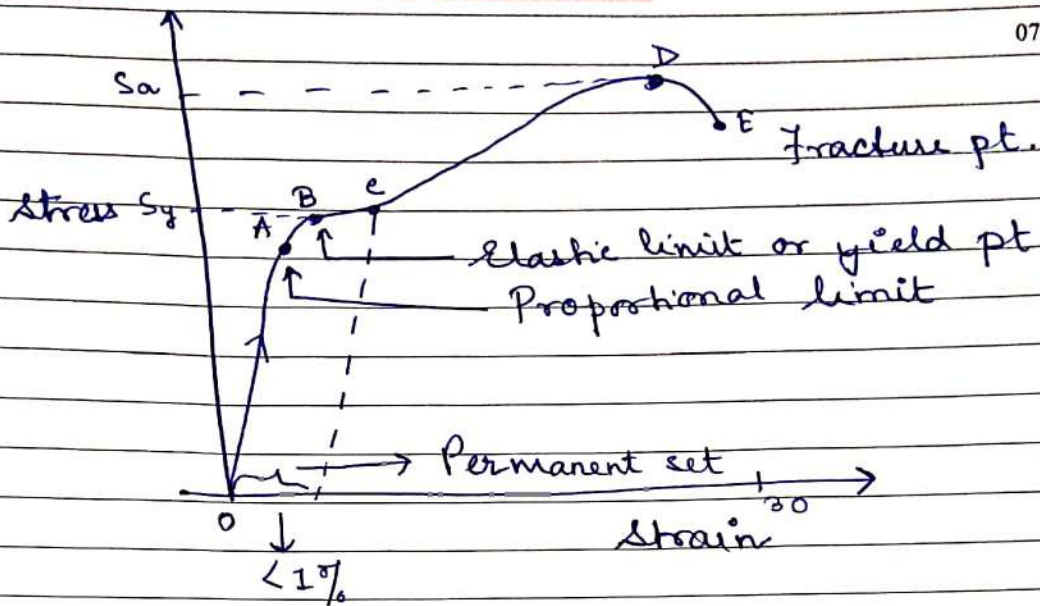 07
D
Sa
E
Fracture pt.
B
c
Stress Sy
A
Elastic limit or yield pt
Proportional limit
Permanent set
30
0
Strain
<1%